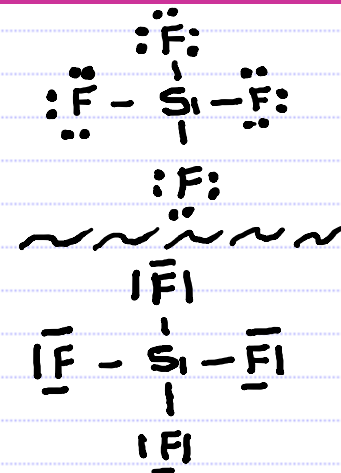 :F:
:F – Si – F:
:F:
|F|
|F – Si – F|
|F|